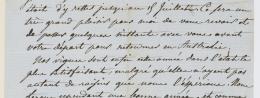 était d'y rester jusqu'au 15 Juillet. Ce sera un
très grand plaisir pour moi de vous revoir et
de passer quelques instants avec vous avant
votre départ pour retourner en Australie.
Nos vignes sont enfin cette année dans l'état le
plus satisfaisant, malgré qu'elles n'ayent pas
autant de raisins que nous l'espérions. Nous
cependant une bonne année, et comme